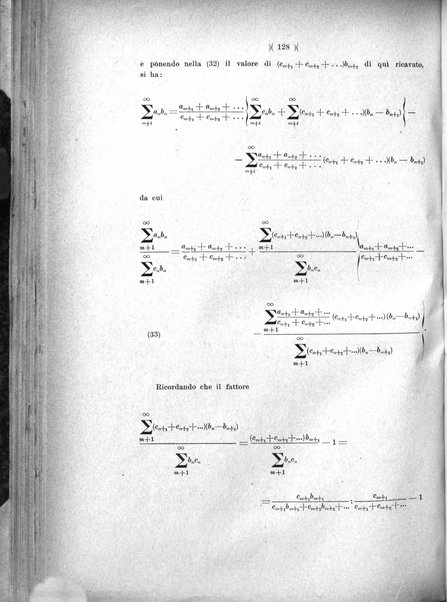 )( 128 )(
e ponendo nella (32) il valore di (c_{m+1} + c_{m+2} + ...)b_{m+1} di quì ricavato,
si ha:
\sum_{m+1}^{\infty} a_n b_n = \frac{a_{m+1} + a_{m+2} + ...}{c_{m+1} + c_{m+2} + ...} \{ \sum_{m+1}^{\infty} c_n b_n + \sum_{m+1}^{\infty} (c_{n+1} + c_{n+2} + ...)(b_n - b_{n+1}) \} -
- \sum_{m+1}^{\infty} \frac{a_{n+1} + a_{n+2} + ...}{c_{n+1} + c_{n+2} + ...} (c_{n+1} + c_{n+2} + ...)(b_n - b_{n+1})
da cui
\frac{\sum_{m+1}^{\infty} a_n b_n}{\sum_{m+1}^{\infty} c_n b_n} = \frac{a_{m+1} + a_{m+2} + ...}{c_{m+1} + c_{m+2} + ...} + \frac{\sum_{m+1}^{\infty} (c_{n+1} + c_{n+2} + ...)(b_n - b_{n+1})}{\sum_{m+1}^{\infty} b_n c_n} \{ \frac{a_{m+1} + a_{m+2} + ...}{c_{m+1} + c_{m+2} + ...} -
(33) - \frac{\sum_{m+1}^{\infty} \frac{a_{n+1} + a_{n+2} + ...}{c_{n+1} + c_{n+2} + ...} (c_{n+1} + c_{n+2} + ...)(b_n - b_{n+1})}{\sum_{m+1}^{\infty} (c_{n+1} + c_{n+2} + ...)(b_n - b_{n+1})} \}
Ricordando che il fattore
\frac{\sum_{m+1}^{\infty} (c_{n+1} + c_{n+2} + ...)(b_n - b_{n+1})}{\sum_{m+1}^{\infty} b_n c_n} = \frac{(c_{m+1} + c_{m+2} + ...)b_{m+1}}{\sum_{m+1}^{\infty} b_n c_n} - 1 =
= \frac{c_{m+1} b_{m+1}}{c_{m+1} b_{m+1} + c_{m+2} b_{m+2} + ...} : \frac{c_{m+1}}{c_{m+1} + c_{m+2} + ...} - 1